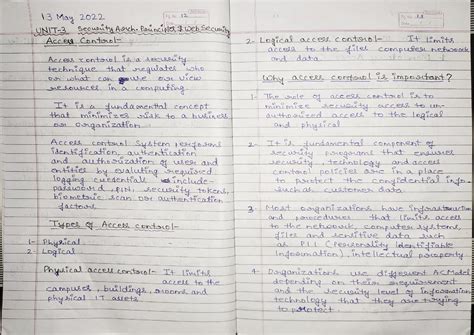 13 May 2022
UNIT-3 Security Arch. Principles & Web Security
Access Control-
Access control is a security
technique that regulates who
or what can use our view
resources in a computing.
It is a fundamental concept
that minimizes risk to a business
or organization.
Access control System performs
identification, authentication
and authorization of user and
entities by evaluting required
logging credentials include
password, PIN, security tokens,
biometric scan or authentication
factors.
Types of Access control-
1- Physical
2- Logical
Physical access control- It limits
access to the
campuses, buildings, rooms and
physical IT assets.
2- Logical access control- It limits
access to the files computer network
and data.
Why access control is important?
1- The role of access control is to
minimize security access to un-
authorized access to the logical
and physical
2- It is fundamental component of
security programs that ensures
security, technology and access
control policies are in a place
to protect the confidential info
such as customer data
3- Most organizations have infrastruction
and procedures that limits access
to the network, computer systems,
files and sensitive data such
as PII (Personality Identifiable
Information), intellectual property
4- Organizations use different AC Model
depending on their requirement
and the security level of information
technology that they are trying
to protect.